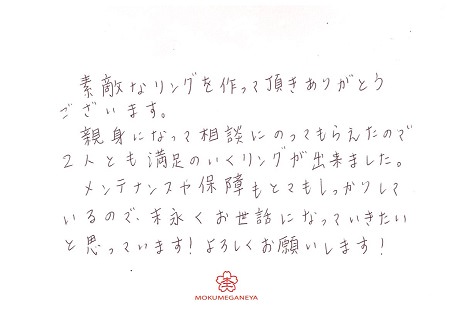 素敵なリングを作って頂きありがとう
ございます。
親身になって相談にのってもらえたので
2人とも満足のいくリングが出来ました。
メンテナンスや保障もとてもしっかりして
いるので、末永くお世話になっていきたい
と思っています!よろしくお願いします!
MOKUMEGANEYA